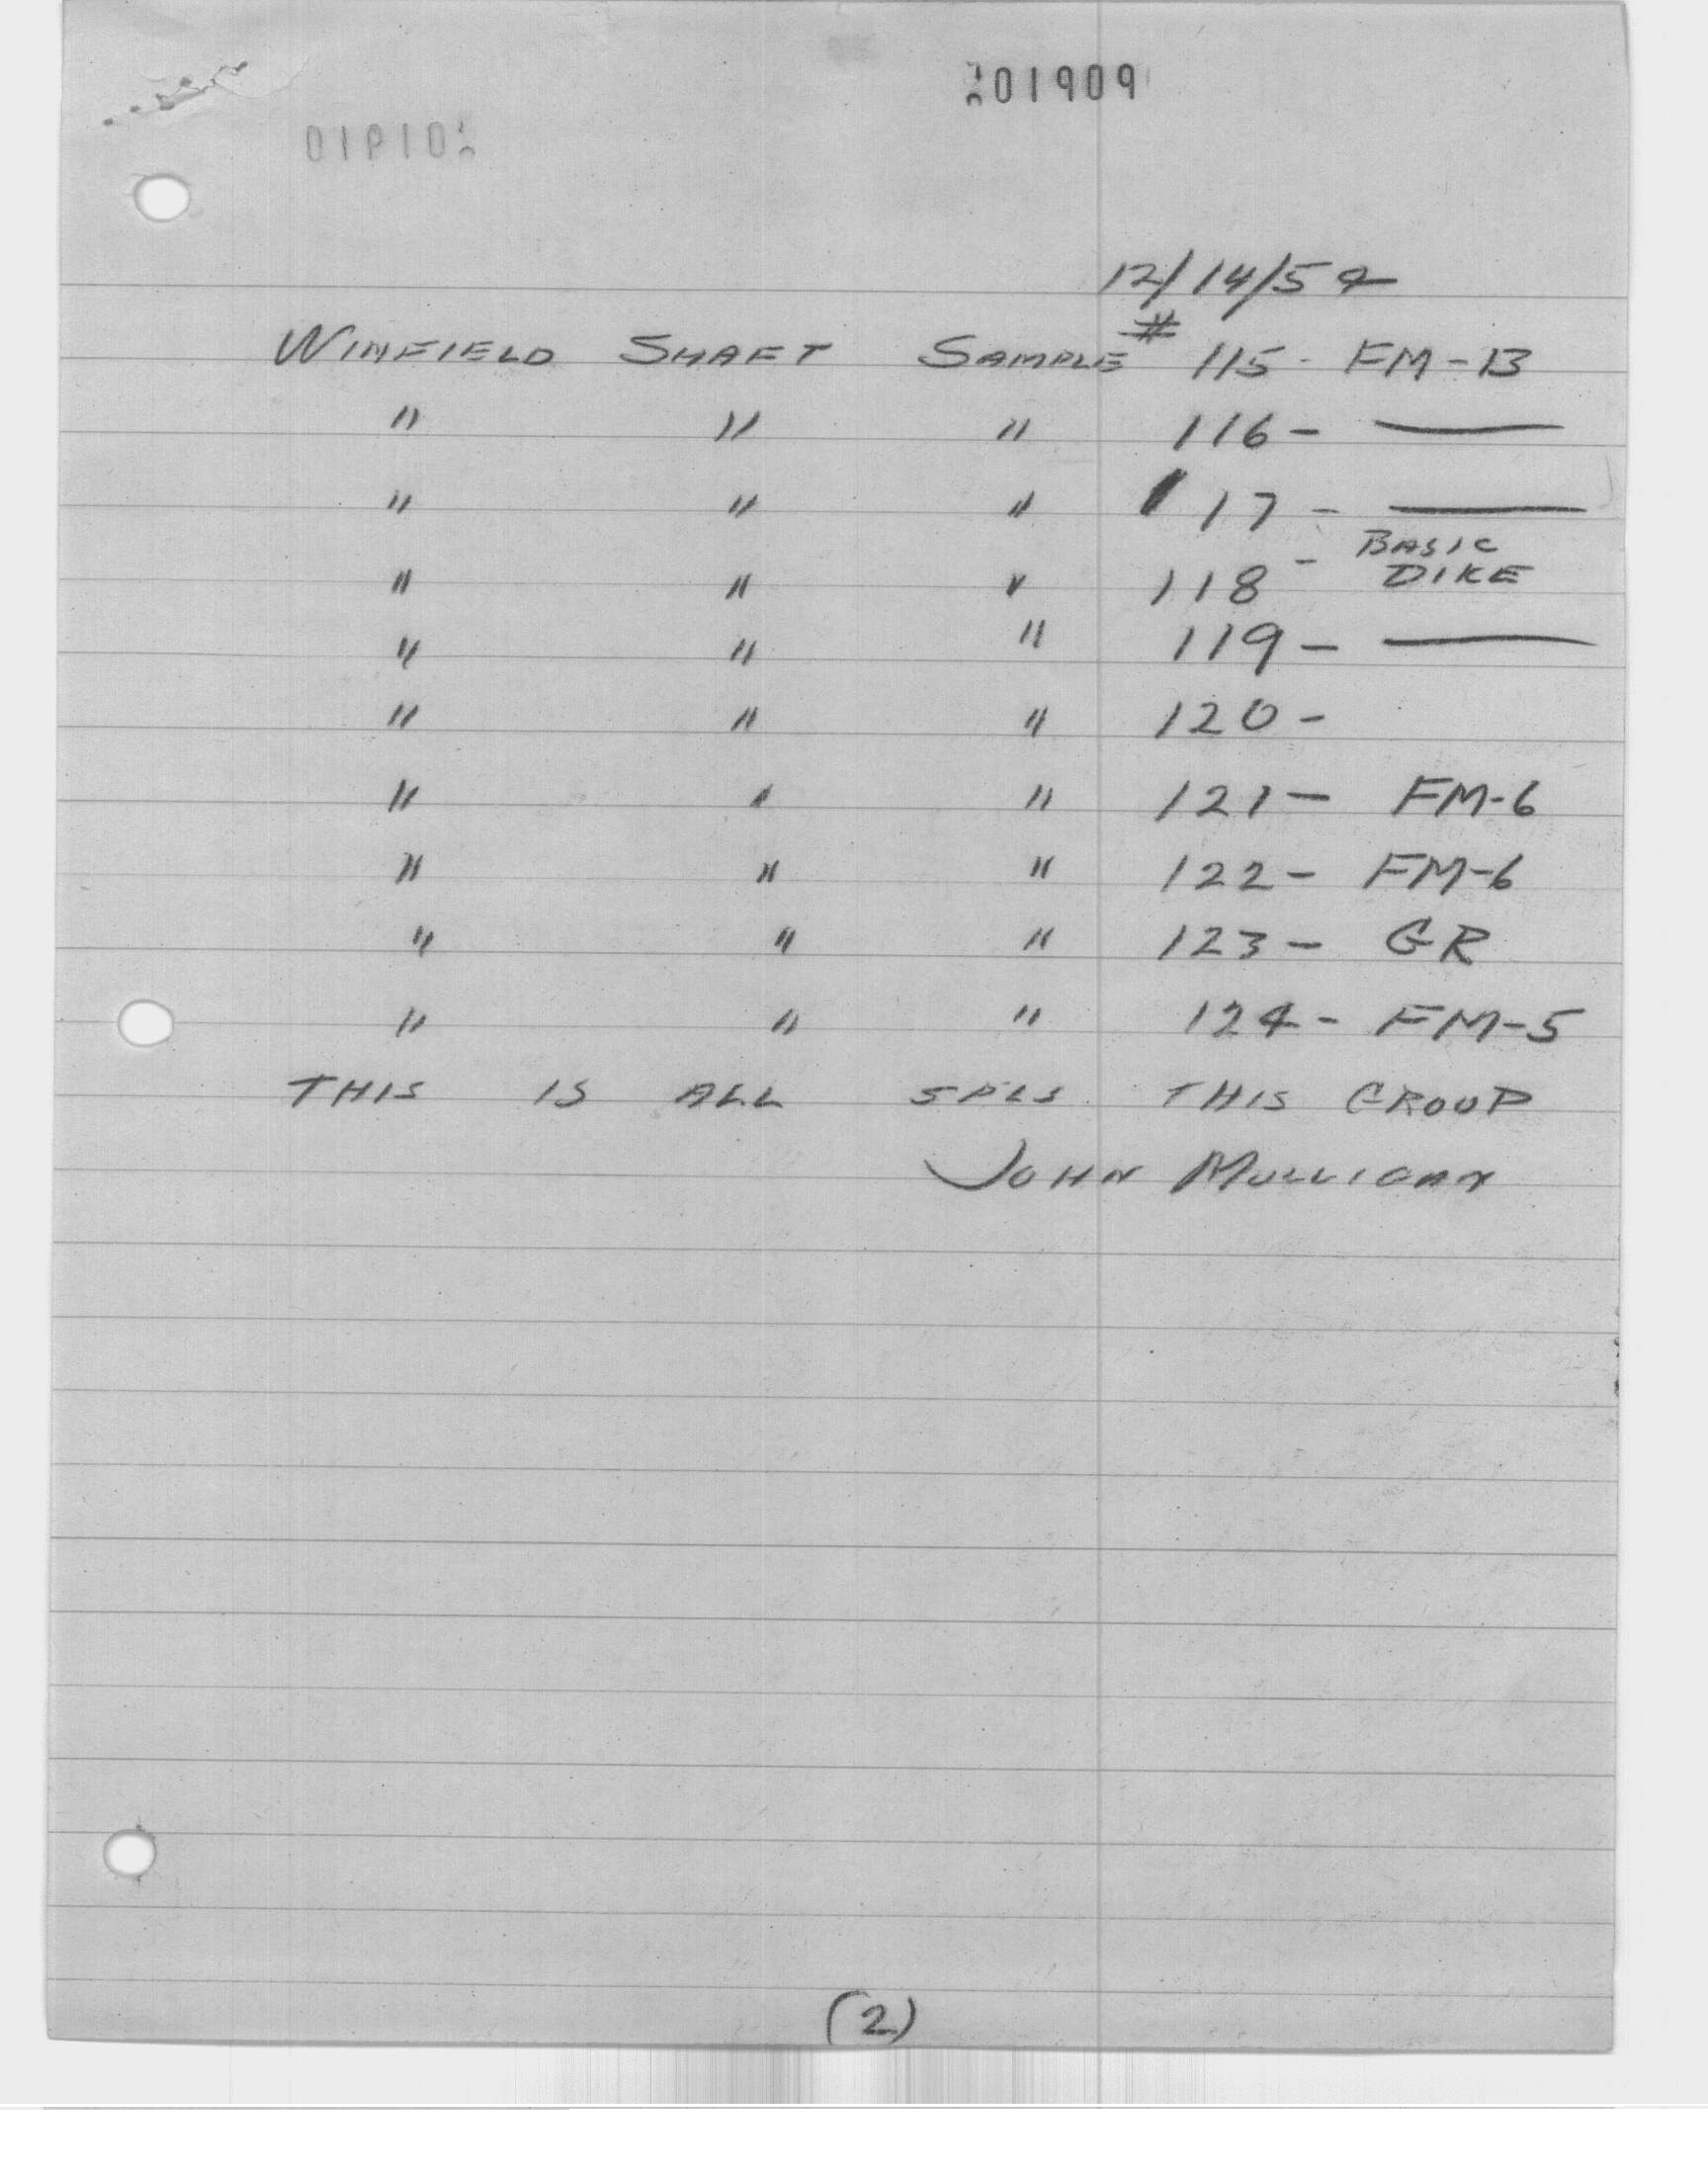 01909
12/14/54
WINFIELD SHAFT SAMPLE # 115 - FM-13
" " " 116 - —
" " " 117 - —
" " " 118 - BASIC DIKE
" " " 119 - —
" " " 120 -
" " " 121 - FM-6
" " " 122 - FM-6
" " " 123 - GR
" " " 124 - FM-5
THIS IS ALL SPLS THIS GROUP
JOHN MULLIGAN
(2)